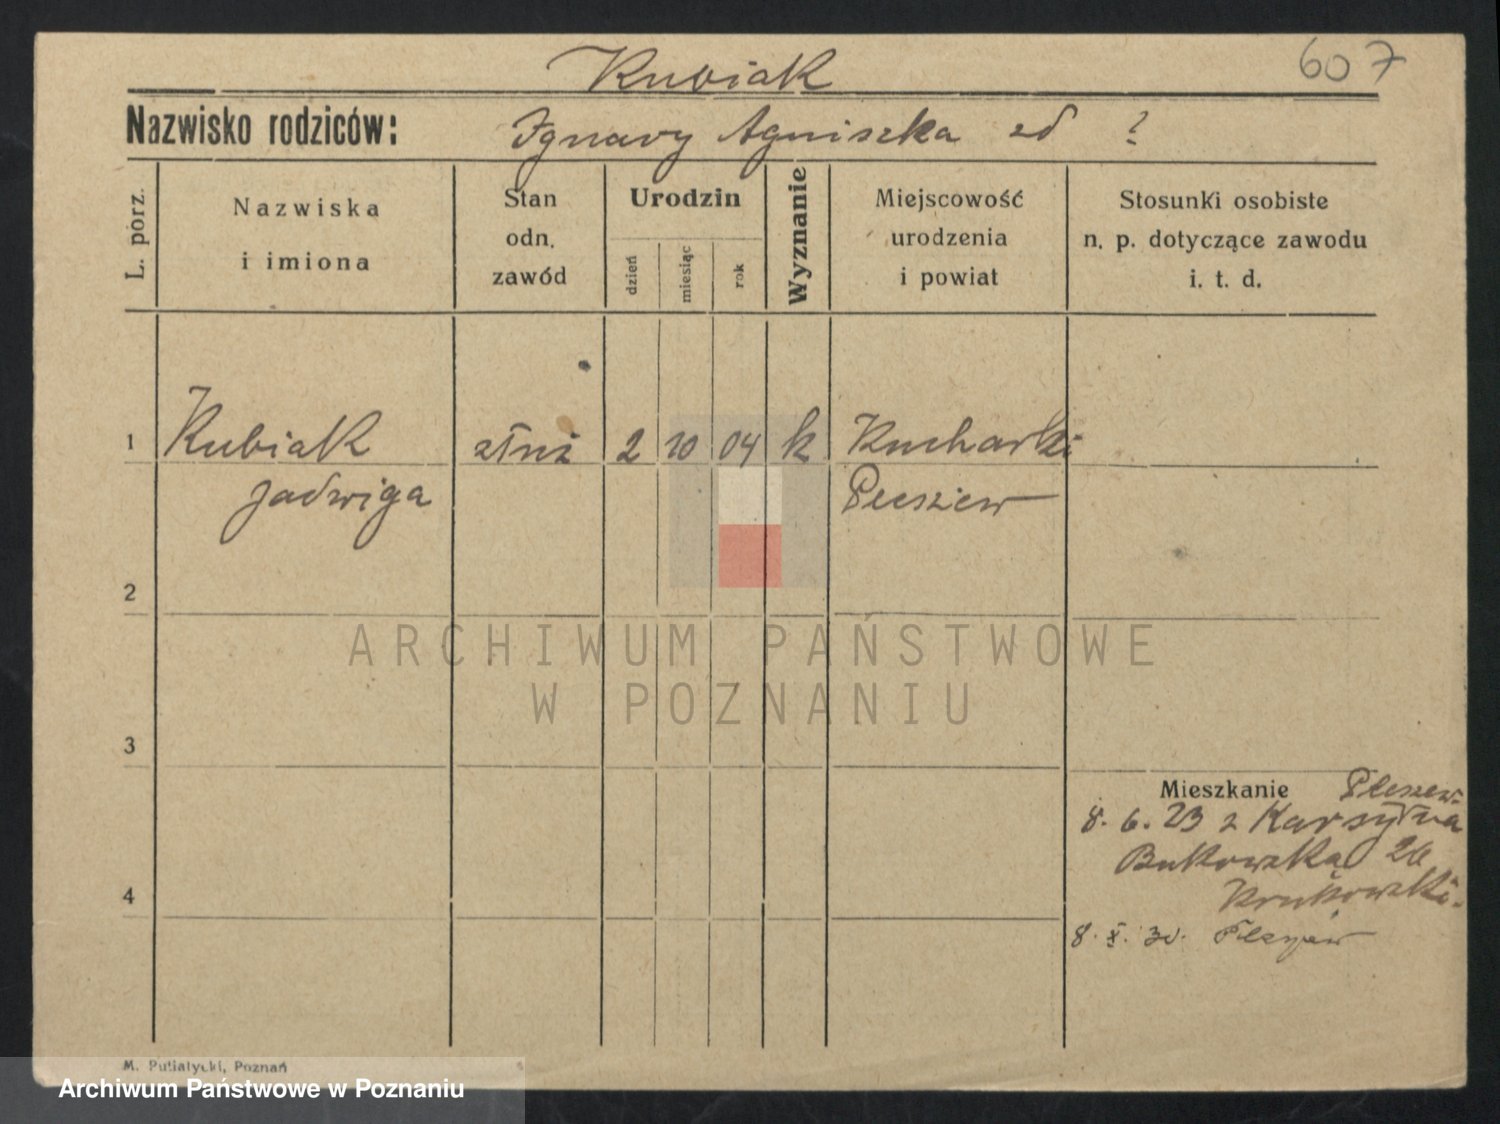 607
Kubiak
Nazwisko rodziców: Ignacy Agniszka zd ?
L. porz.
Nazwiska
i imiona
Stan
odn.
zawód
Urodzin
dzień
miesiąc
rok
Wyznanie
Miejscowość
urodzenia
i powiat
Stosunki osobiste
n. p. dotyczące zawodu
i. t. d.
1 Kubiak służ 2 10 04 k Kucharki
Jadwiga Pleszew
2
ARCHIWUM PAŃSTWOWE
W POZNANIU
3
Mieszkanie Pleszew
8. 6. 23 z
Bukowska 26
4
8. X. 30. Pleszew
M. Putiatycki, Poznań
Archiwum Państwowe w Poznaniu